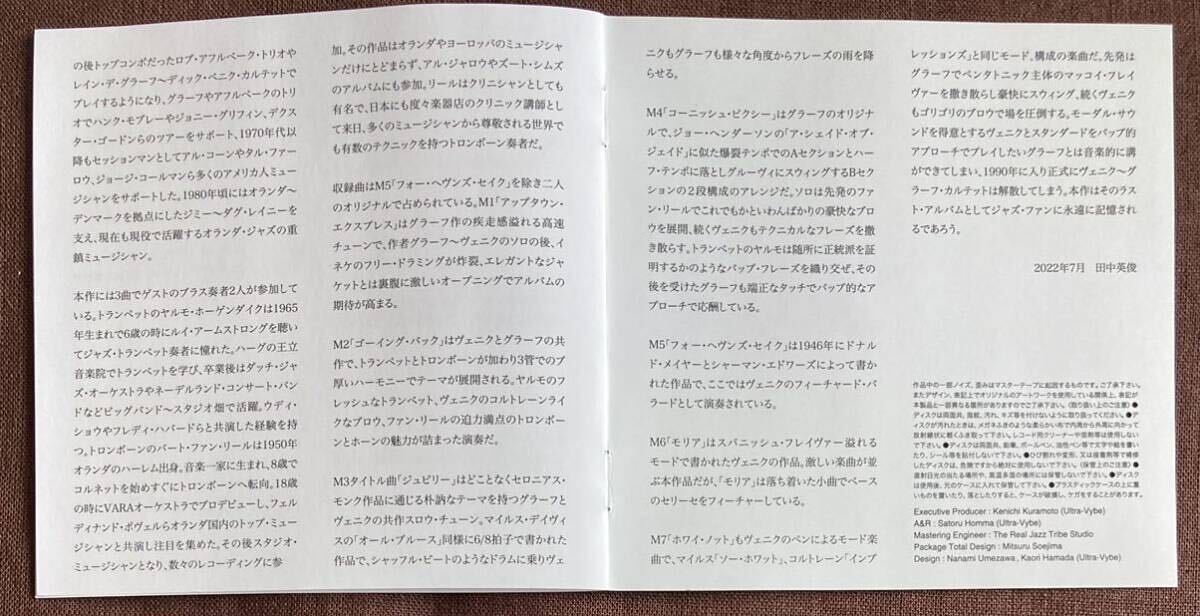 の後トップコンボだったロブ・アフルベーク・トリオや
レイン・デ・グラーフ〜ディック・ベニク・カルテットで
プレイするようになり、グラーフやアフルベークのトリ
オでハンク・モブレーやジョニー・グリフィン、デクス
ター・ゴードンらのツアーをサポート、1970年代以
降もセッションマンとしてアル・コーンやタル・ファー
ロウ、ジョージ・コールマンら多くのアメリカ人ミュー
ジシャンをサポートした。1980年頃にはオランダ〜
デンマークを拠点にしたジミー〜ダグ・レイニーを
支え、現在も現役で活躍するオランダ・ジャズの重
鎮ミュージシャン。
本作には3曲でゲストのブラス奏者2人が参加して
いる。トランペットのヤルモ・ホーゲンダイクは1965
年生まれで6歳の時にルイ・アームストロングを聴い
てジャズ・トランペット奏者に憧れた。ハーグの王立
音楽院でトランペットを学び、卒業後はダッチ・ジャ
ズ・オーケストラやネーデルランド・コンサート・バン
ドなどビッグバンド〜スタジオ畑で活躍。ウディ・
ショウやフレディ・ハバードらと共演した経験を持
つ。トロンボーンのバート・ファン・リールは1950年
オランダのハーレム出身。音楽一家に生まれ、8歳で
コルネットを始めすぐにトロンボーンへ転向。18歳
の時にVARAオーケストラでプロデビューし、フェル
ディナンド・ポヴェルらオランダ国内のトップ・ミュー
ジシャンと共演し注目を集めた。その後スタジオ・
ミュージシャンとなり、数々のレコーディングに参
加。その作品はオランダやヨーロッパのミュージシャ
ンだけにとどまらず、アル・ジャロウやズート・シムズ
のアルバムにも参加。リールはクリニシャンとしても
有名で、日本にも度々楽器店のクリニック講師とし
て来日、多くのミュージシャンから尊敬される世界で
も有数のテクニックを持つトロンボーン奏者だ。
収録曲はM5「フォー・ヘヴンズ・セイク」を除き二人
のオリジナルで占められている。M1「アップタウン・
エクスプレス」はグラーフ作の疾走感溢れる高速
チューンで、作者グラーフ〜ヴェニクのソロの後、イ
ネケのフリー・ドラミングが炸裂、エレガントなジャ
ケットとは裏腹に激しいオープニングでアルバムの
期待が高まる。
M2「ゴーイング・バック」はヴェニクとグラーフの共
作で、トランペットとトロンボーンが加わり3管でのブ
厚いハーモニーでテーマが展開される。ヤルモのフ
レッシュなトランペット、ヴェニクのコルトレーンライ
クなブロウ、ファン・リールの迫力満点のトロンボー
ンとホーンの魅力が詰まった演奏だ。
M3タイトル曲「ジュビリー」はどことなくセロニアス・
モンク作品に通じる朴訥なテーマを持つグラーフと
ヴェニクの共作スロウ・チューン。マイルス・デイヴィ
スの「オール・ブルース」同様に6/8拍子で書かれた
作品で、シャッフル・ビートのようなドラムに乗りヴェ
ニクもグラーフも様々な角度からフレーズの雨を降
らせる。
M4「コーニッシュ・ピクシー」はグラーフのオリジナ
ルで、ジョー・ヘンダーソンの「ア・シェイド・オブ・
ジェイド」に似た爆裂テンポでのAセクションとハー
フ・テンポに落としグルーヴィにスウィングするBセ
クションの2段構成のアレンジだ。ソロは先発のファ
ン・リールでこれでもかといわんばかりの豪快なブロ
ウを展開、続くヴェニクもテクニカルなフレーズを撒
き散らす。トランペットのヤルモは随所に正統派を証
明するかのようなバップ・フレーズを織り交ぜ、その
後を受けたグラーフも端正なタッチでバップ的なア
プローチで応酬している。
M5「フォー・ヘヴンズ・セイク」は1946年にドナル
ド・メイヤーとシャーマン・エドワーズによって書か
れた作品で、ここではヴェニクのフィーチャード・バ
ラードとして演奏されている。
M6「モリア」はスパニッシュ・フレイヴァー溢れる
モードで書かれたヴェニクの作品。激しい楽曲が並
ぶ本作品だが、「モリア」は落ち着いた小曲でベース
のセリーセをフィーチャーしている。
M7「ホワイ・ノット」もヴェニクのペンによるモード楽
曲で、マイルス「ソー・ホワット」、コルトレーン「インプ
レッションズ」と同じモード。構成の楽曲だ。先発は
グラーフでペンタトニック主体のマッコイ・フレイ
ヴァーを撒き散らし豪快にスウィング、続くヴェニク
もゴリゴリのブロウで場を圧倒する。モーダル・サウ
ンドを得意とするヴェニクとスタンダードをバップ的
アプローチでプレイしたいグラーフとは音楽的に溝
ができてしまい、1990年に入り正式にヴェニク〜グ
ラーフ・カルテットは解散してしまう。本作はそのラス
ト・アルバムとしてジャズ・ファンに永遠に記憶され
るであろう。
2022年7月　田中英俊
作品中の一部ノイズ、歪みはマスターテープに起因するものです。ご了承下さい。
またデザイン、表記上でオリジナルのアートワークを使用している関係上、表記が
本製品と一部異なる箇所がありますのでご了承下さい。〈取り扱い上のご注意〉●
ディスクは両面共、指紋、汚れ、キズ等を付けないように取り扱ってください。●デ
ィスクが汚れたときは、メガネふきのような柔らかい布で内周から外周に向かって
放射線状に軽くふき取って下さい。レコード用クリーナーや溶剤等は使用しない
で下さい。●ディスクは両面共、鉛筆、ボールペン、油性ペン等で文字や絵を書い
たり、シール等を貼付しないで下さい。●ひび割れや変形、又は接着剤等で補修
したディスクは、危険ですから絶対に使用しないで下さい。〈保管上のご注意〉●
直射日光の当たる場所や、高温多湿の場所には保管しないで下さい。●ディスク
は使用後、元のケースに入れて保管して下さい。●プラスティックケースの上に重
いものを置いたり、落としたりすると、ケースが破損し、ケガをすることがあります。
Executive Producer : Kenichi Kuramoto (Ultra-Vybe)
A&R : Satoru Homma (Ultra-Vybe)
Mastering Engineer : The Real Jazz Tribe Studio
Package Total Design : Mitsuru Soejima
Design : Nanami Umezawa , Kaori Hamada (Ultra-Vybe)